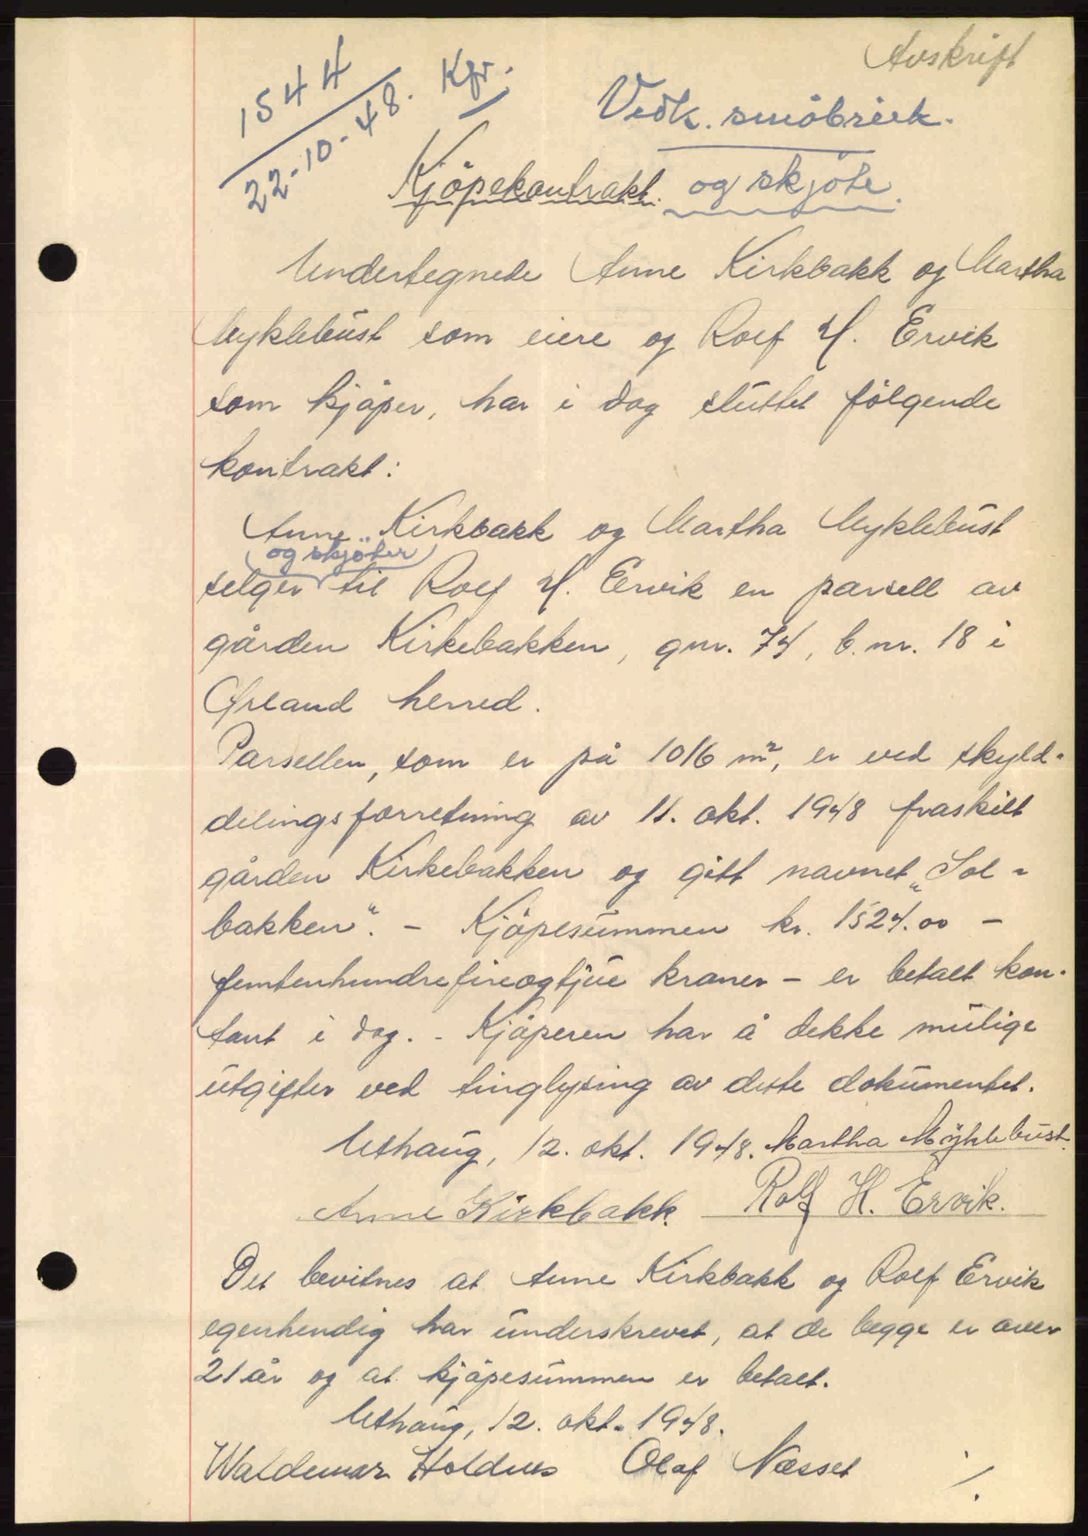 Avskrift
1544
22-10-48. Kfr.
Vedk. småbruk.
Kjöpekontrakt. og skjöte.
Undertegnede Anne Kirkbakk og Martha
Myklebust som eiere og Rolf H. Ervik
som kjöper, har i dag sluttet fölgende
kontrakt:
Anne Kirkbakk og Martha Myklebust
og skjöter
selger til Rolf H. Ervik en parsell av
gården Kirkebakken, gnr. 74, b.nr. 18 i
Örland herred.
Parsellen, som er på 1016 m², er ved skyld-
delingsforretning av 11. okt. 1948 fraskilt
gården Kirkebakken og gitt navnet „Sol-
bakken". - Kjöpesummen kr. 1524.00 -
femtenhundrefireogtjue kroner - er betalt kon-
tant i dag. - Kjöperen har å dekke mulige
utgifter ved tinglysing av dette dokumentet.
Uthaug, 12. okt. 1948. Martha Myklebust.
Anne Kirkbakk. Rolf H. Ervik.
Det bevitnes at Anne Kirkbakk og Rolf Ervik
egenhendig har underskrevet, at de begge er over
21 år og at kjöpesummen er betalt.
Uthaug, 12. okt. 1948.
Waldemar Holdnes Olaf Næsset
./.